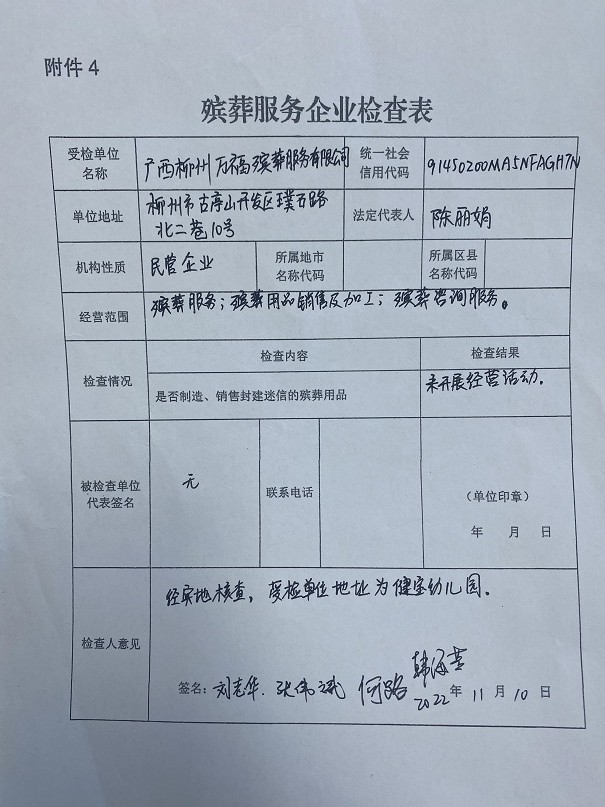 附件4
殡葬服务企业检查表
受检单位名称 广西柳州万福殡葬服务有限公司 统一社会信用代码 91450200MA5NFAGH7N
单位地址 柳州市古亭山开发区璞石路
北二巷10号
法定代表人 陈丽娟
机构性质 民营企业 所属地市名称代码 所属区县名称代码
经营范围 殡葬服务;殡葬用品销售及加工;殡葬咨询服务。
检查情况 检查内容 检查结果
是否制造、销售封建迷信的殡葬用品 未开展经营活动.
被检查单位代表签名 无 联系电话 (单位印章)
年 月 日
检查人意见 经实地核查,受检单位地址为健宝幼儿园.
签名:刘志华.张伟斌 何路
2022年11月10日